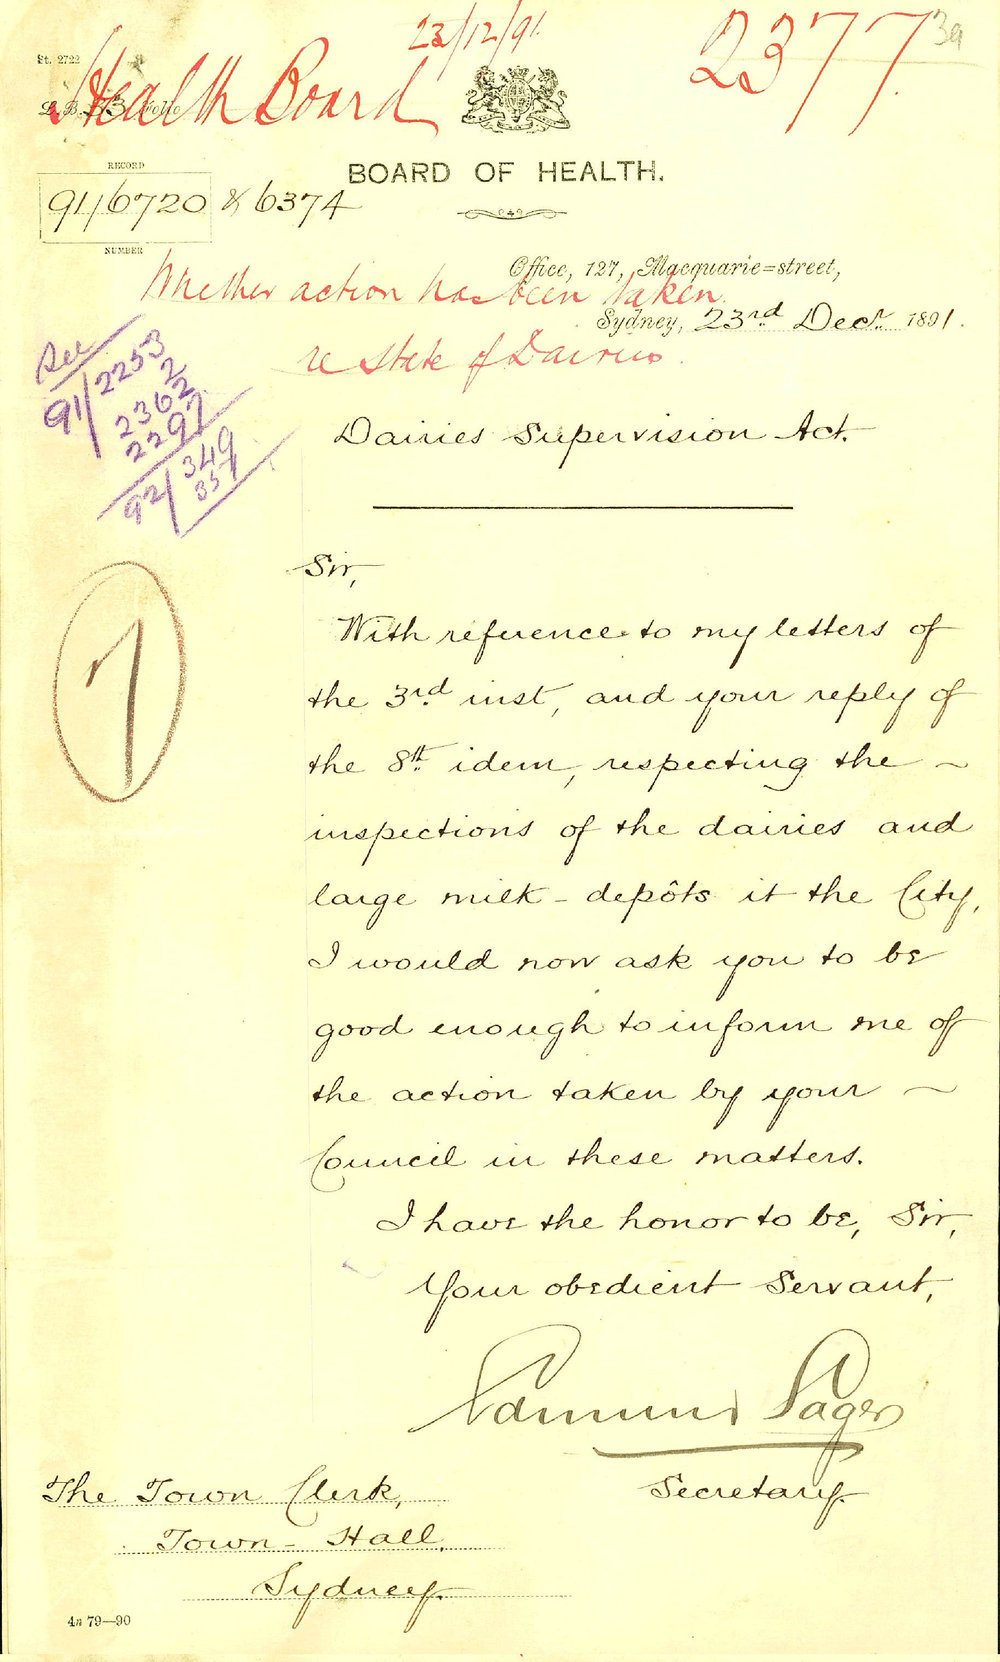 23/12/91.
2377
39
St. 2722
Health Board
BOARD OF HEALTH.
RECORD
91/6720 & 6374
NUMBER
Office, 127, Macquarie=street,
Whether action has been taken
Sydney, 23rd Decr. 1891.
re State of Dairies.
See
91/2253
2
2362
2297
92/349
357
Dairies Supervision Act.
Sir,
7
With reference to my letters of
the 3rd inst, and your reply of
the 8th idem, respecting the ~
inspections of the dairies and
large milk-depôts it the City,
I would now ask you to be
good enough to inform me of
the action taken by your ~
Council in these matters.
I have the honor to be, Sir,
Your obedient Servant,
Edmund Sager
Secretary.
The Town Clerk,
Town-Hall,
Sydney.
4a 79—90